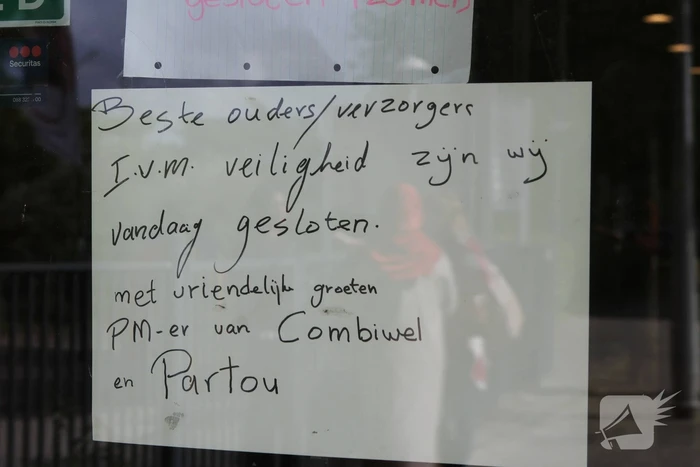 gesloten (zomers
Securitas
Beste ouders/verzorgers
I.v.m. veiligheid zijn wij
vandaag gesloten.
met vriendelijk groeten
PM-er van Combiwel
en Partou